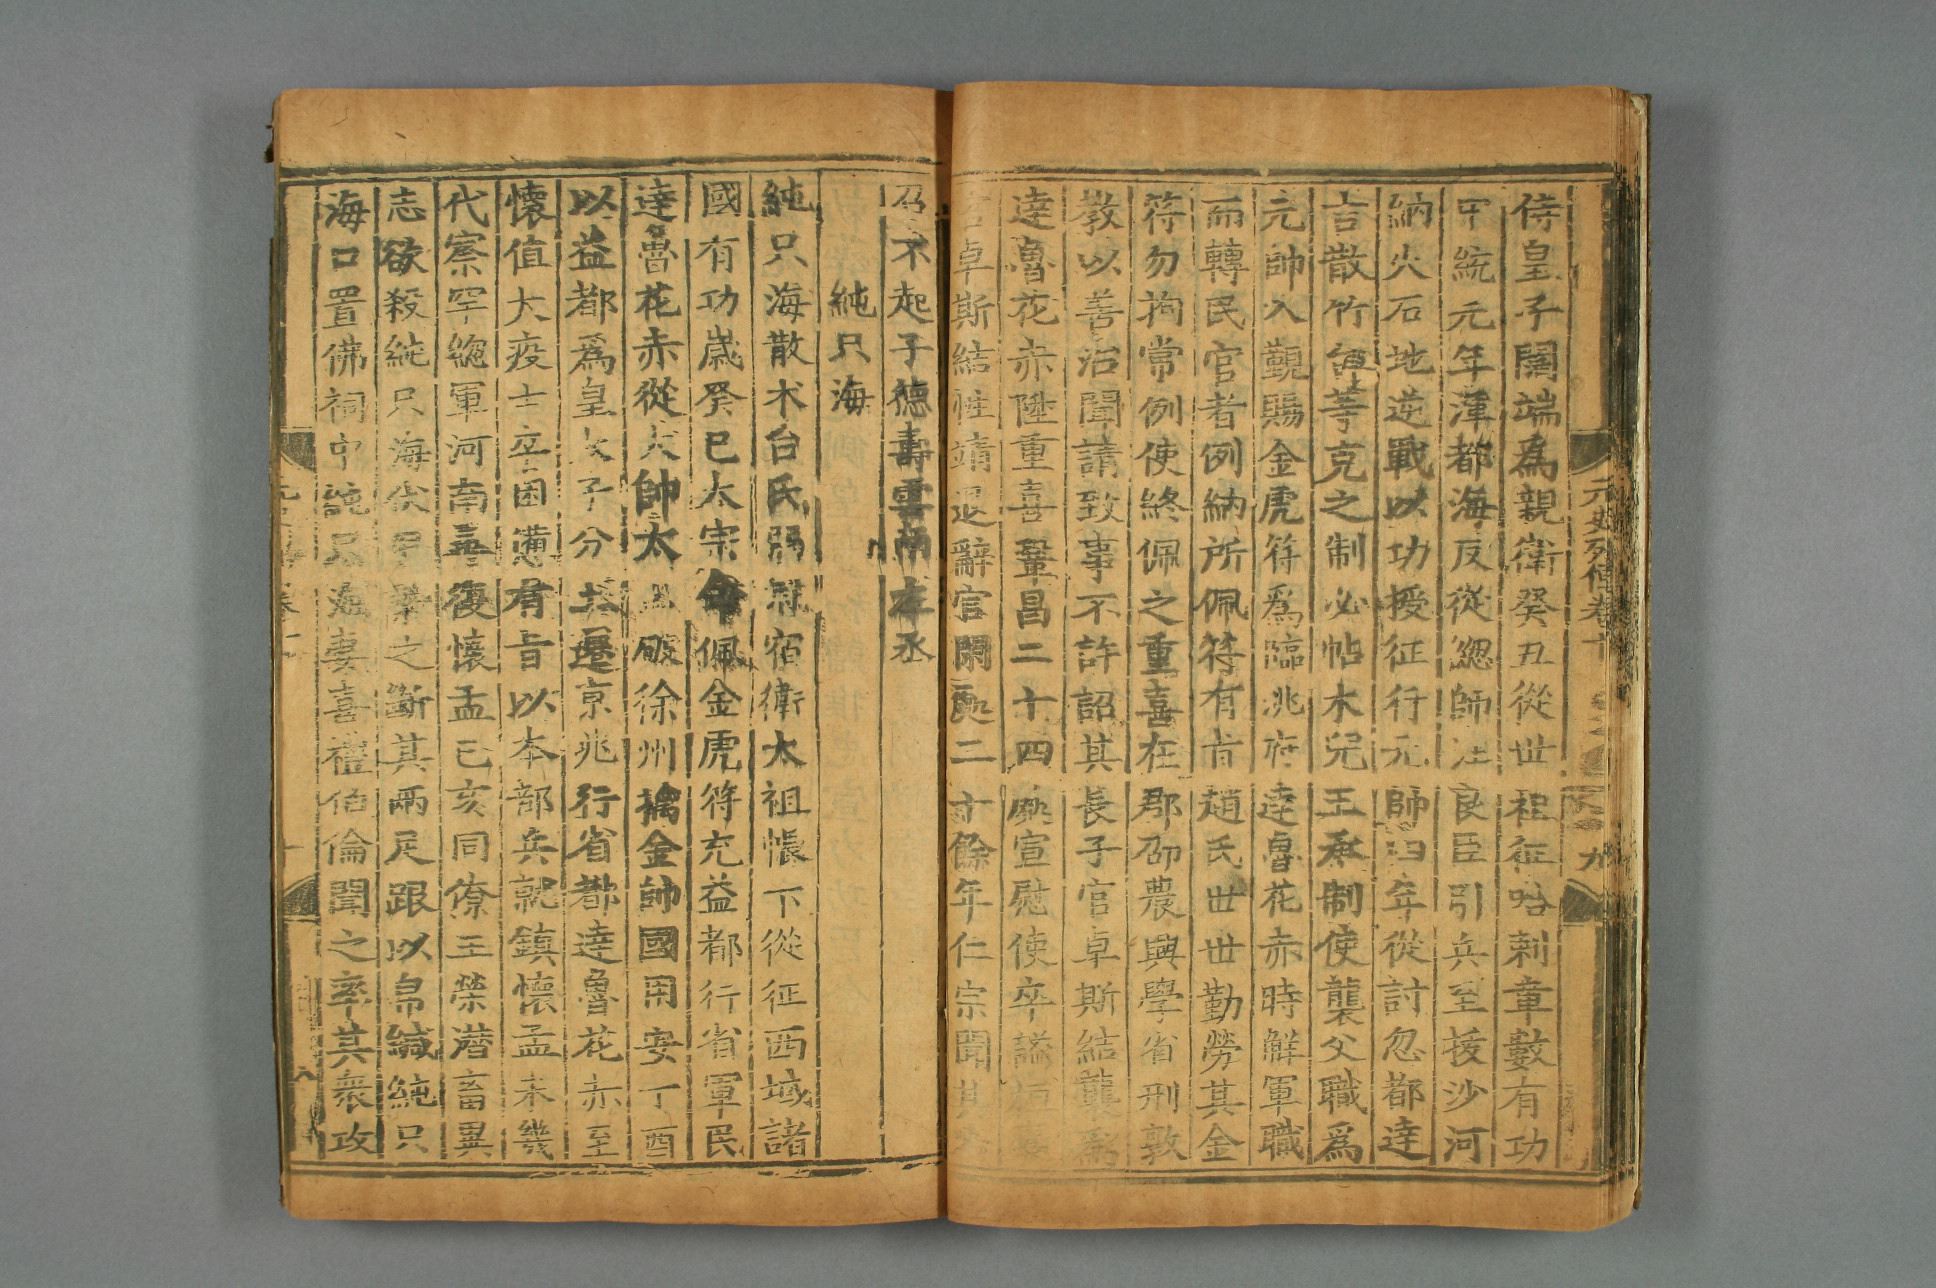 元史列傳卷十 九
侍皇子闊端爲親衛癸丑從世祖征哈剌章數有功
中統元年渾都海反從總帥汪良臣引兵至拔沙河
納火石地逆戰以功授征行元帥四年從討忽都達
吉散竹台等克之制必帖木兒王承制使襲父職爲
元帥入覲賜金虎符爲臨洮府達魯花赤時觧軍職
而轉民官者例納所佩符有旨趙氏世世勤勞其金
符勿拘常例使終佩之重喜在郡勸農興學省刑敦
教以善治聞請致事不許詔其長子官卓斯結襲爲
達魯花赤陞重喜鞏昌二十四處宣慰使卒謚桓襄
官卓斯結性靖退辭官閑處二十餘年仁宗聞其
召不起子德壽雲南左丞
純只海
純只海散术台氏弱冠宿衛太祖帳下從征西域諸
國有功歲癸巳太宗命佩金虎符充益都行省軍民
達魯花赤從大帥太出破徐州擒金帥國用安丁酉
以益都爲皇太子分土遷京兆行省都達魯花赤至
懷值大疫士卒困憊有旨以本部兵就鎮懷孟未幾
代察罕緫軍河南尋復懷孟己亥同僚王榮潜畜異
志欲殺純只海伏甲縶之斷其兩足跟以帛緘純只
海口置佛祠中純只海妻喜禮伯倫聞之率其衆攻